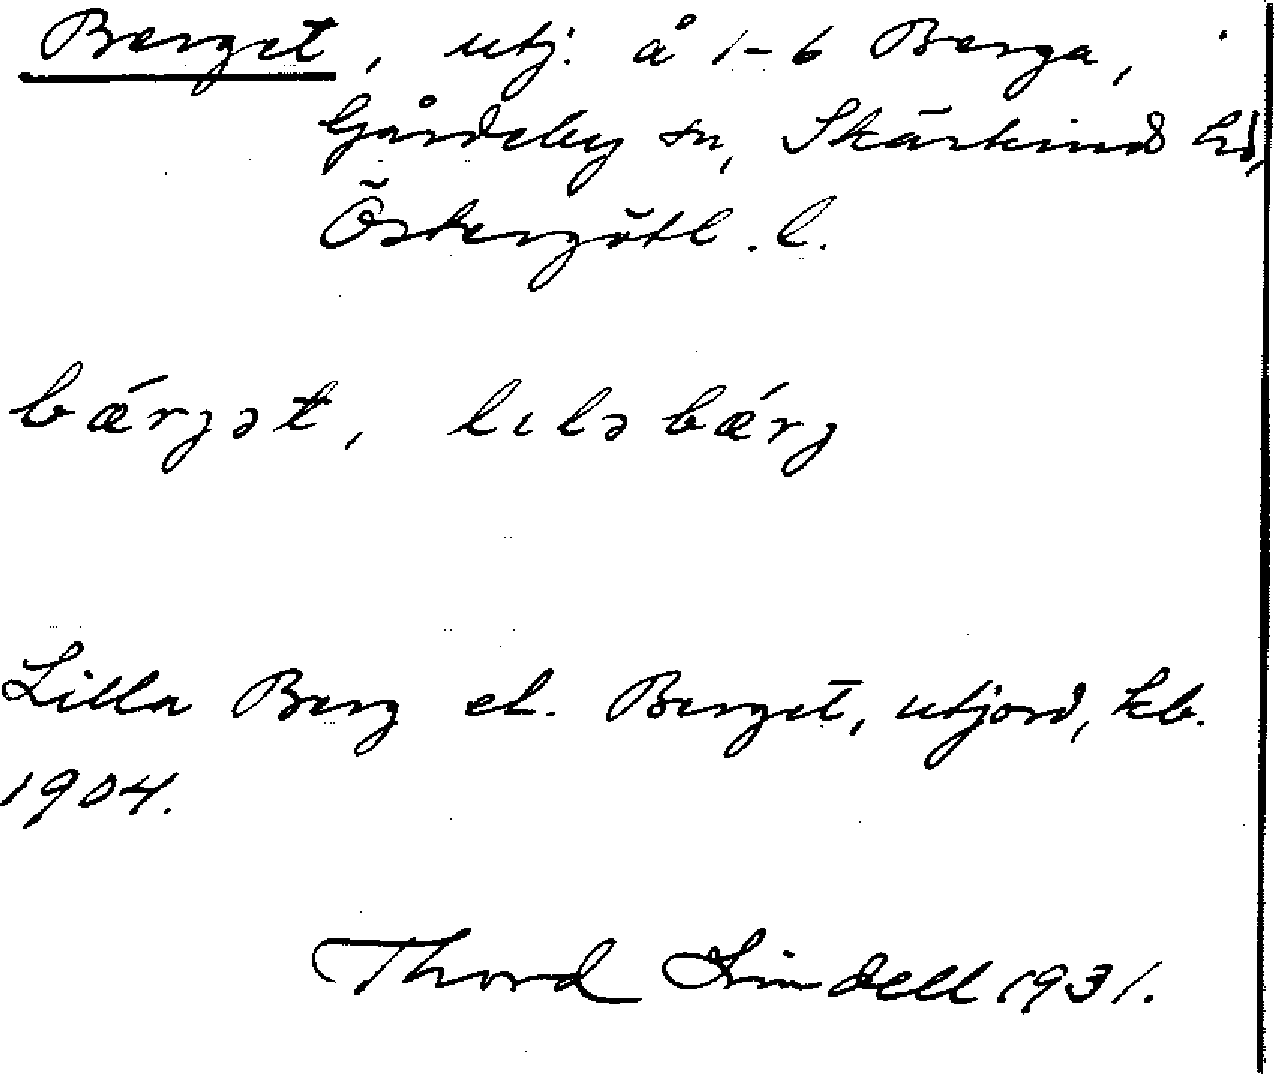 Berget, utj. å 1-6 Berga,
Gårdeby sn, Skärkind hd,
Östergötl. l.
bǽrjət, liləbǽrj
Lilla Berg el. Berget, utjord, kb.
1904.
Thord Lindell 1931.